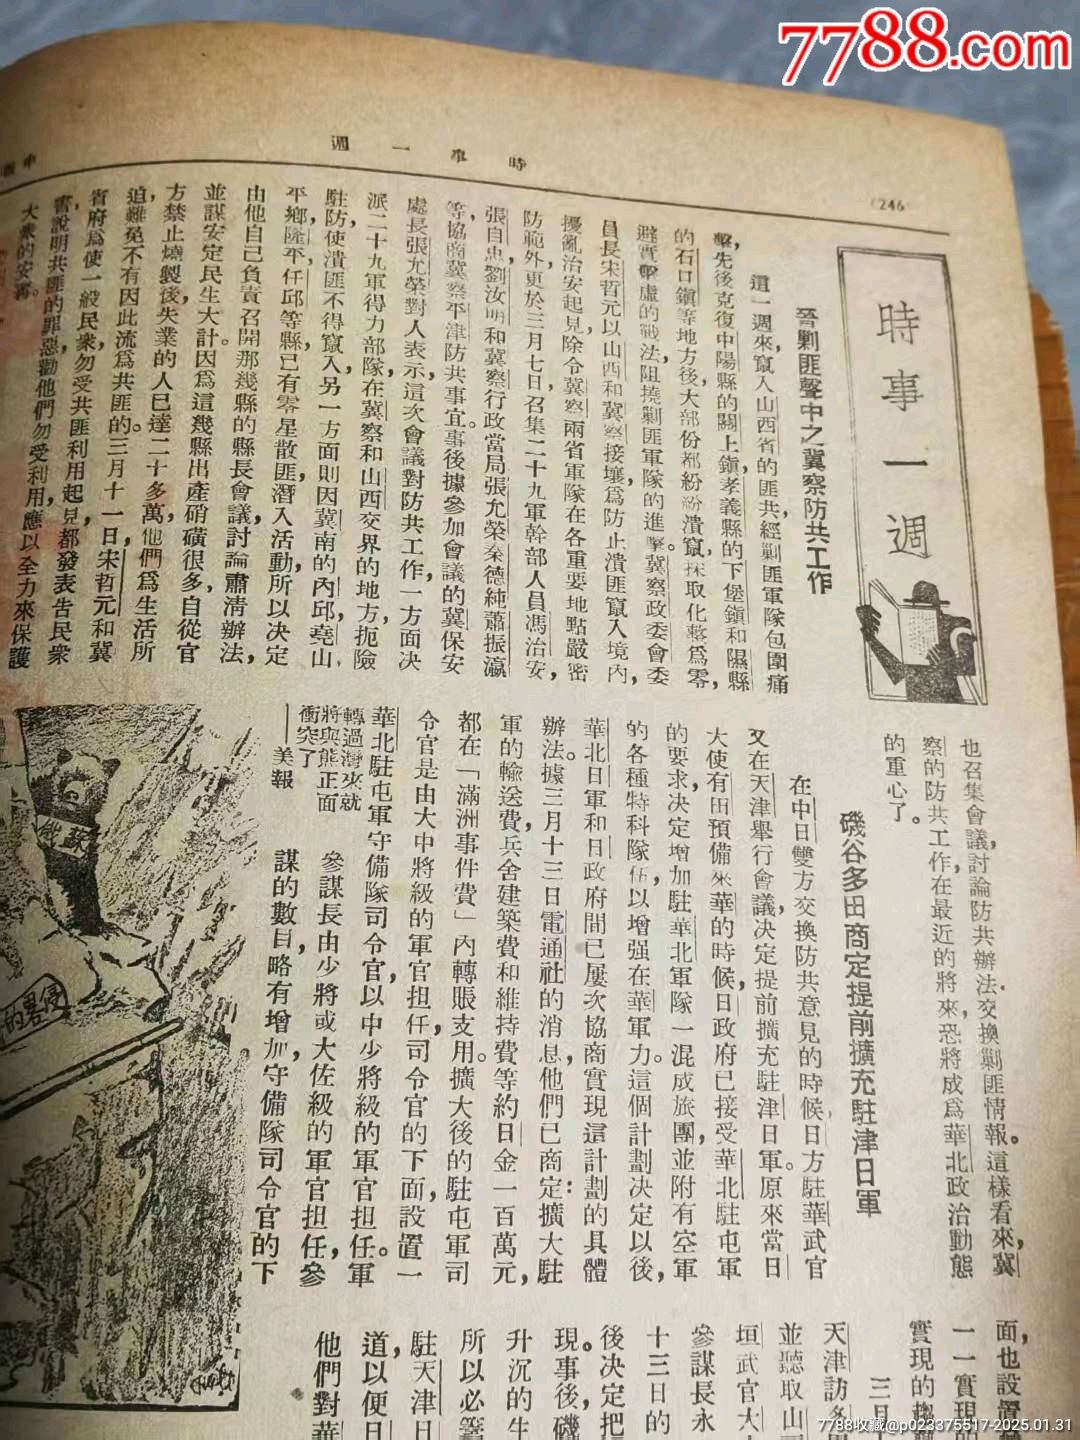 7788.com
時事一週
(246)
時事一週
晉剿匪聲中之冀察防共工作
這一週來,竄入山西省的匪共,經剿匪軍隊包圍痛
擊,先後克復中陽縣的關上鎮,孝義縣的下堡鎮和隰縣
的石口鎮等地方後,大部份都紛紛潰竄,採取化整為零,
避實擊虛的戰法,阻撓剿匪軍隊的進擊。冀察政委會委
員長宋哲元以山西和冀察接壤,為防止潰匪竄入境內,
擾亂治安起見,除令冀察兩省軍隊在各重要地點嚴密
防範外,更於三月七日召集二十九軍幹部人員馮治安,
張自忠,劉汝明和冀察行政當局張允榮,秦德純,蕭振瀛
等,協商冀察平津防共事宜。事後據參加會議的冀保安
處長張允榮對人表示,這次會議對防共工作,一方面決
派二十九軍得力部隊在冀察和山西交界的地方,扼險
駐防,使潰匪不得竄入,另一方面則因冀南的內邱,堯山,
平鄉,隆平,任邱等縣已有零星散匪潛入活動,所以決定
由他自己負責召開那幾縣的縣長會議,討論肅清辦法,
並謀安定民生大計。因為這幾縣出產硝磺很多,自從官
方禁止燒製後,失業的人已達二十多萬,他們為生活所
迫,難免不有因此流為共匪的。三月十一日,宋哲元和冀
省府為使一般民衆勿受共匪利用起見,都發表告民衆
書,說明共匪的罪惡,勸他們勿受利用,應以全力來保護
大衆的安寧。
也召集會議,討論防共辦法,交換剿匪情報。這樣看來,冀
察的防共工作,在最近的將來,恐將成為華北政治動態
的重心了。
磯谷多田商定提前擴充駐津日軍
在中日雙方交換防共意見的時候,日方駐華武官
又在天津舉行會議,決定提前擴充駐津日軍。原來當日
大使有田預備來華的時候,日政府已接受華北駐屯軍
的要求,決定增加駐華北軍隊一混成旅團,並附有空軍
的各種特科隊伍,以增强在華軍力。這個計劃決定以後,
華北日軍和日政府間已屢次協商實現這計劃的具體
辦法。據三月十三日電通社的消息,他們已商定:擴大駐
軍的輸送費,兵舍建築費和維持費等約日金一百萬元,
都在「滿洲事件費」內轉賬支用。擴大後的駐屯軍司
令官是由大中將級的軍官担任,司令官的下面,設置一
華北駐屯軍守備隊司令官,以中少將級的軍官担任。軍
參謀長由少將或大佐級的軍官担任,參
謀的數目,略有增加,守備隊司令官的下
轉過灣來就
將與熊正面
衝突了
——美報
蘇俄
侵畧的
面,也設置
一一實現
實現的趨
三月
天津訪多田
並聽取山
垣武官大
參謀長永
十三日的
後決定把
現。事後,磯
升沉的生
所以必籌
駐天津日
道,以便日
他們對華
7788收藏@p023375517-2025.01.31